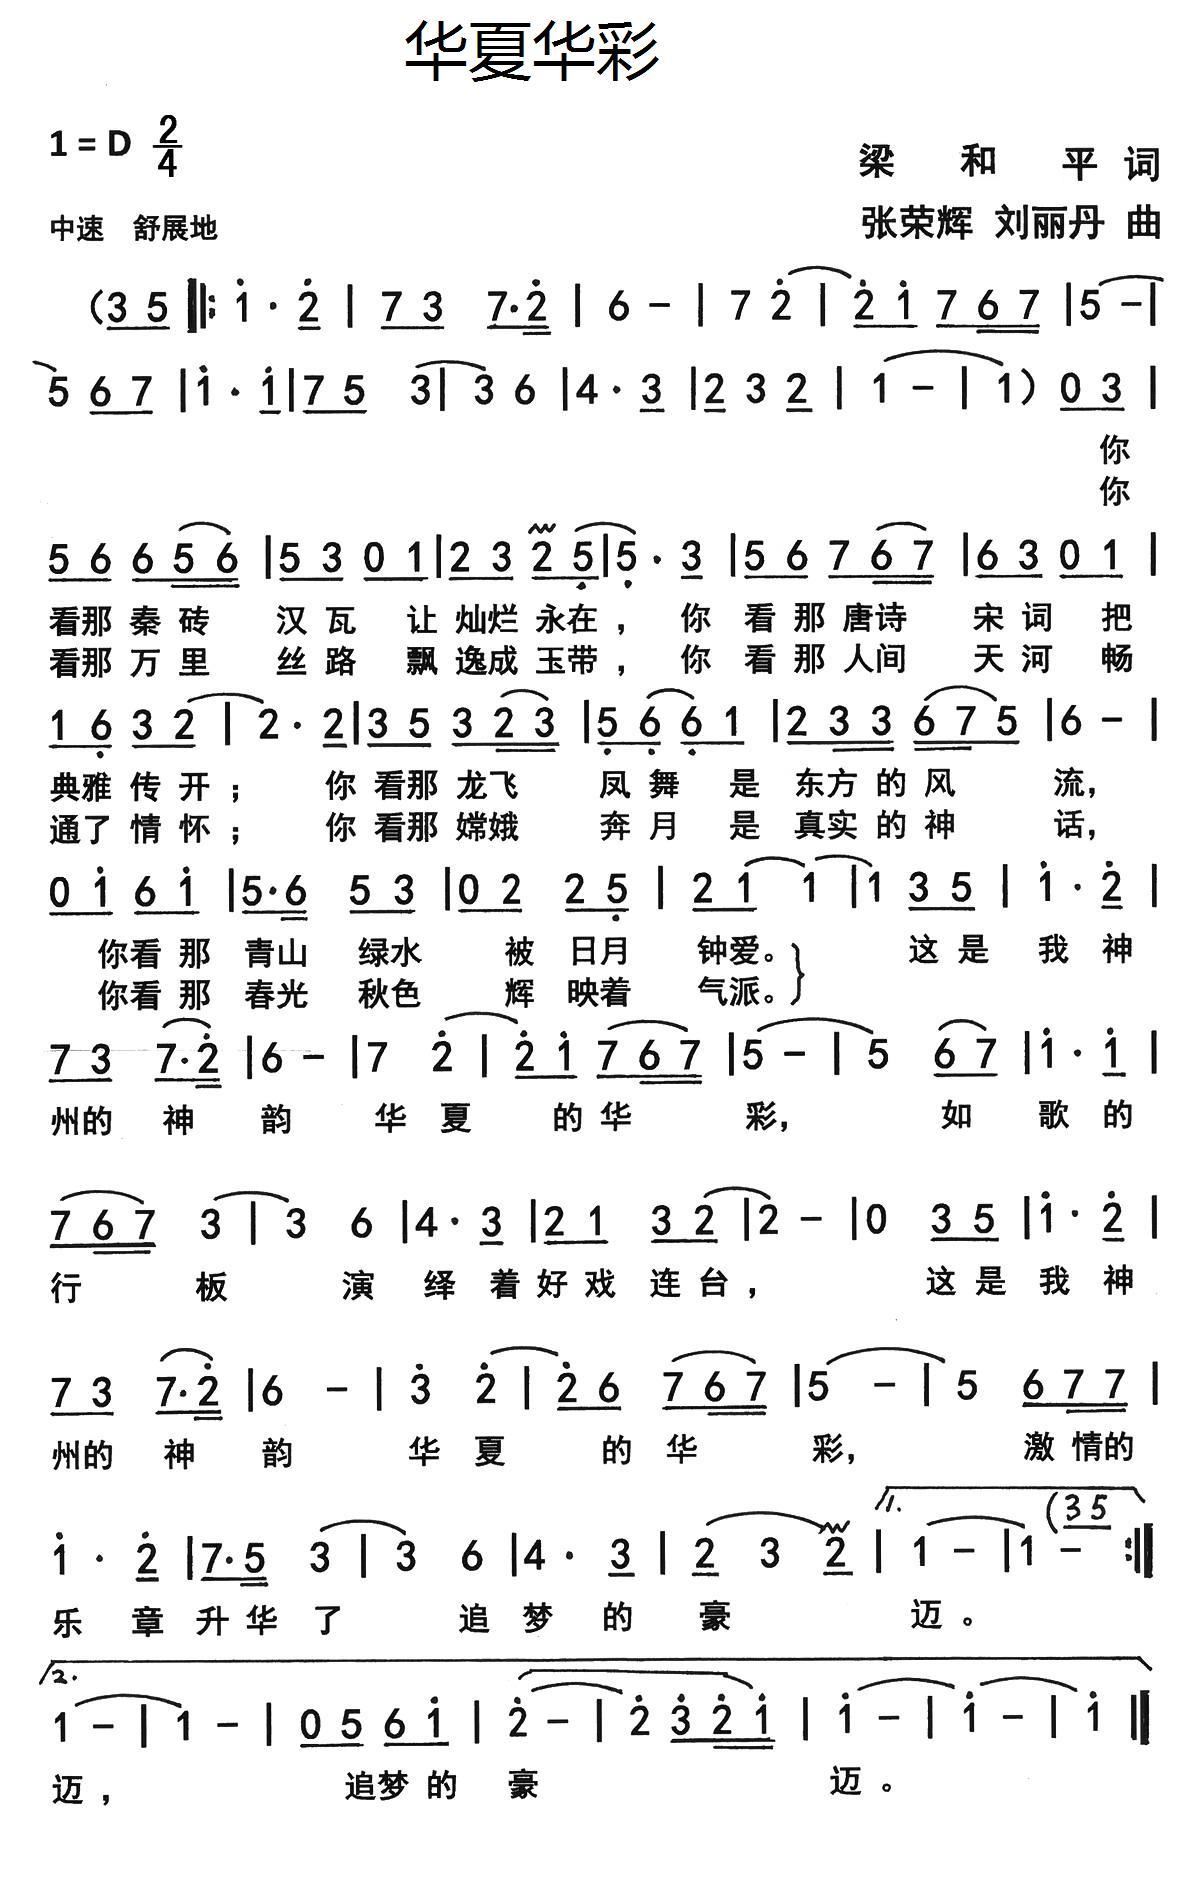 华夏华彩
1 = D 2/4
梁 和 平 词
中速 舒展地
张荣辉 刘丽丹 曲
(3 5 ‖: i · 2̇ | 7 3 7·2̇ | 6 – | 7 2̇ | 2̇ i 7 6 7 | 5 – |
5 6 7 | i · i | 7 5 3 | 3 6 | 4 · 3 | 2 3 2 | 1 – | 1) 0 3 |
你
你
5 6 6 5 6 | 5 3 0 1 | 2 3 2 5̣ | 5̣ · 3 | 5 6 7 6 7 | 6 3 0 1 |
看那 秦 砖 汉 瓦 让 灿烂 永在， 你 看 那 唐诗 宋 词 把
看那 万 里 丝 路 飘 逸成 玉带， 你 看 那 人间 天 河 畅
1 6̣ 3 2 | 2 · 2 | 3 5 3 2 3 | 5̣ 6̣ 6̣ 1 | 2 3 3 6 7 5 | 6 – |
典雅 传 开； 你 看那 龙飞 凤 舞 是 东方 的 风 流，
通了 情 怀； 你 看那 嫦娥 奔 月 是 真实 的 神 话，
0 i 6 i | 5·6 5 3 | 0 2 2 5̣ | 2 1 1 | 1 3 5 | i · 2̇ |
你看 那 青山 绿水 被 日月 钟爱。 这 是 我 神
你看 那 春光 秋色 辉 映着 气派。
7 3 7·2̇ | 6 – | 7 2̇ | 2̇ i 7 6 7 | 5 – | 5 6 7 | i · i |
州的 神 韵 华 夏 的 华 彩， 如 歌 的
7 6 7 3 | 3 6 | 4 · 3 | 2 1 3 2 | 2 – | 0 3 5 | i · 2̇ |
行 板 演 绎 着 好 戏 连 台， 这 是 我 神
7 3 7·2̇ | 6 – | 3̇ 2̇ | 2̇ 6 7 6 7 | 5 – | 5 6 7 7 |
州的 神 韵 华 夏 的 华 彩， 激 情的
1. (3 5
i · 2̇ | 7·5 3 | 3 6 | 4 · 3 | 2 3 2 | 1 – | 1 – :‖
乐 章 升 华 了 追 梦 的 豪 迈。
2.
1 – | 1 – | 0 5 6 i | 2̇ – | 2̇ 3̇ 2̇ i | i – | i – | i ‖
迈， 追梦 的 豪 迈。